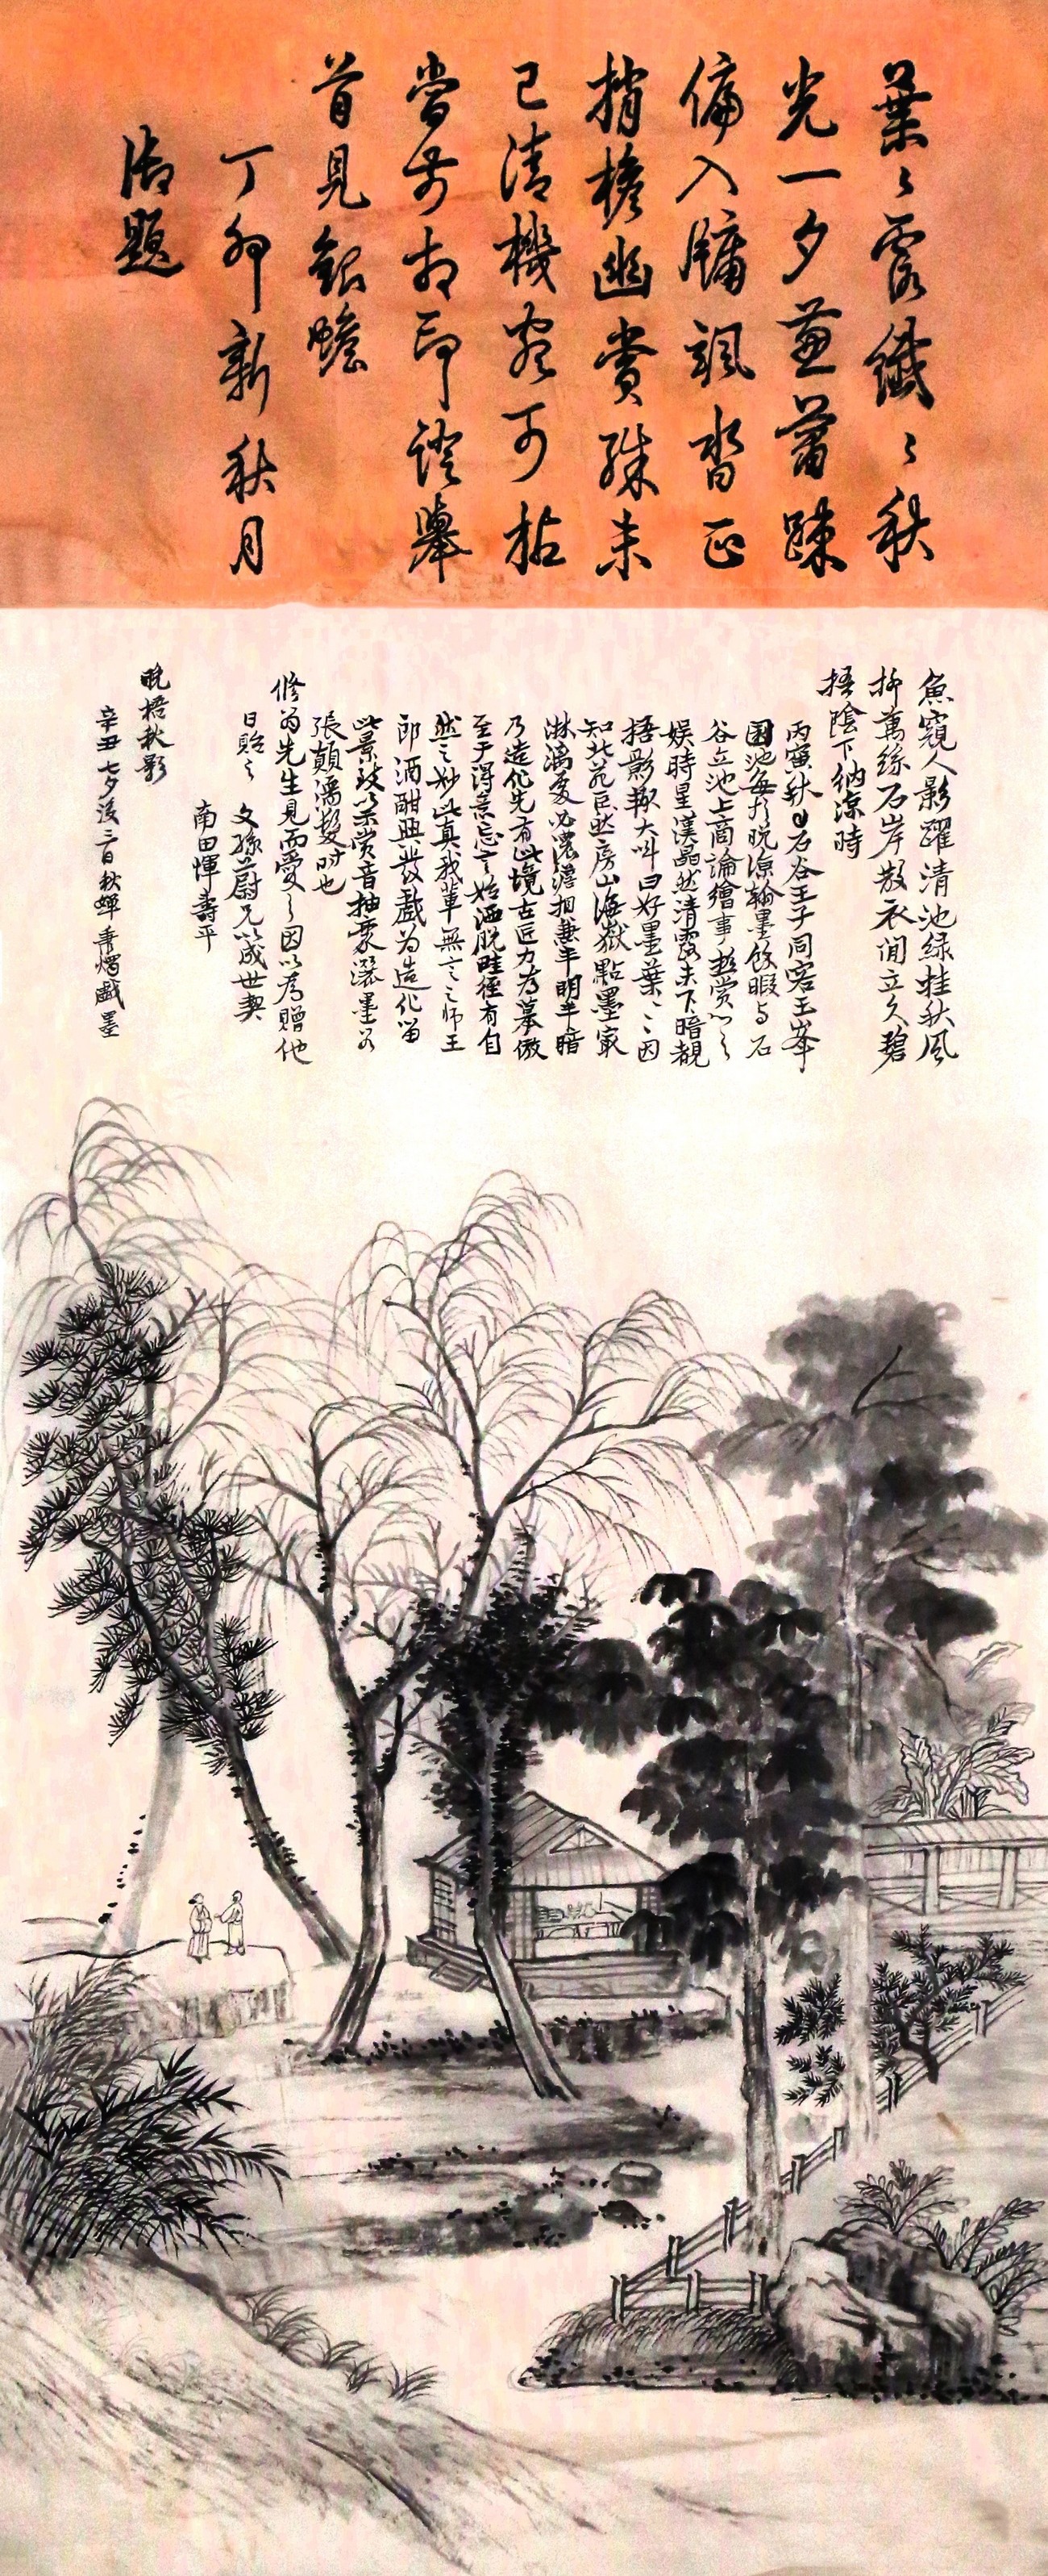 葉〻露纖〻秋
光一夕兼蕭疎
偏入牖颯沓正
捎檐幽賞殊未
已清機宛可拈
當前相印證舉
首見銀蟾
丁卯新秋月
御題
魚窺人影躍清池綠挂秋風
柳萬絲石岸散衣閒立久碧
梧陰下納涼時
丙寅秋日石谷王子同客玉峯
園池每於晚涼翰墨餘暇与石
谷立池上商論繪事極賞心之
娛時星漢晶然清露未下暗覩
梧影輒大叫曰好墨葉〻因
知北苑巨然房山海嶽點墨最
淋漓處必濃澹相兼半明半暗
乃造化先有此境古匠力為摹倣
至于得意忘言始洒脫畦徑有自
然之妙此真我輩無言之師王
郎酒酣興發戲為造化留
此景致以索賞音抽豪灑墨若
張顛濡髮時也
修翁先生見而愛之因以為贈他
日貽之 文孫蔚兄以成世契
南田惲壽平
晚梧秋影
辛丑七夕後三日秋蟬秉燭戲墨